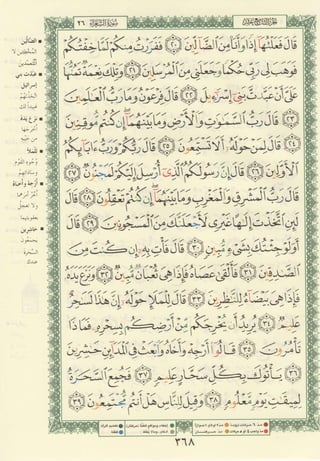 الجزء التاسع عشر
سورة الشعراء
٢٦
قَالَ فَعَلْتُهَا إِذًا وَأَنَا مِنَ الضَّالِّينَ ٢٠ فَفَرَرْتُ مِنكُمْ لَمَّا خِفْتُكُمْ
فَوَهَبَ لِي رَبِّي حُكْمًا وَجَعَلَنِي مِنَ الْمُرْسَلِينَ ٢١ وَتِلْكَ نِعْمَةٌ تَمُنُّهَا
عَلَيَّ أَنْ عَبَّدتَّ بَنِي إِسْرَائِيلَ ٢٢ قَالَ فِرْعَوْنُ وَمَا رَبُّ الْعَالَمِينَ
٢٣ قَالَ رَبُّ السَّمَاوَاتِ وَالْأَرْضِ وَمَا بَيْنَهُمَا إِن كُنتُم مُّوقِنِينَ
٢٤ قَالَ لِمَنْ حَوْلَهُ أَلَا تَسْتَمِعُونَ ٢٥ قَالَ رَبُّكُمْ وَرَبُّ آبَائِكُمُ
الْأَوَّلِينَ ٢٦ قَالَ إِنَّ رَسُولَكُمُ الَّذِي أُرْسِلَ إِلَيْكُمْ لَمَجْنُونٌ ٢٧
قَالَ رَبُّ الْمَشْرِقِ وَالْمَغْرِبِ وَمَا بَيْنَهُمَا إِن كُنتُمْ تَعْقِلُونَ ٢٨ قَالَ
لَئِنِ اتَّخَذْتَ إِلَهًا غَيْرِي لَأَجْعَلَنَّكَ مِنَ الْمَسْجُونِينَ ٢٩ قَالَ
أَوَلَوْ جِئْتُكَ بِشَيْءٍ مُّبِينٍ ٣٠ قَالَ فَأْتِ بِهِ إِن كُنتَ مِنَ
الصَّادِقِينَ ٣١ فَأَلْقَى عَصَاهُ فَإِذَا هِيَ ثُعْبَانٌ مُّبِينٌ ٣٢ وَنَزَعَ يَدَهُ
فَإِذَا هِيَ بَيْضَاءُ لِلنَّاظِرِينَ ٣٣ قَالَ لِلْمَلَإِ حَوْلَهُ إِنَّ هَذَا لَسَاحِرٌ
عَلِيمٌ ٣٤ يُرِيدُ أَن يُخْرِجَكُم مِّنْ أَرْضِكُم بِسِحْرِهِ فَمَاذَا
تَأْمُرُونَ ٣٥ قَالُوا أَرْجِهْ وَأَخَاهُ وَابْعَثْ فِي الْمَدَائِنِ حَاشِرِينَ
٣٦ يَأْتُوكَ بِكُلِّ سَحَّارٍ عَلِيمٍ ٣٧ فَجُمِعَ السَّحَرَةُ
لِمِيقَاتِ يَوْمٍ مَّعْلُومٍ ٣٨ وَقِيلَ لِلنَّاسِ هَلْ أَنتُم مُّجْتَمِعُونَ ٣٩
٣٦٨